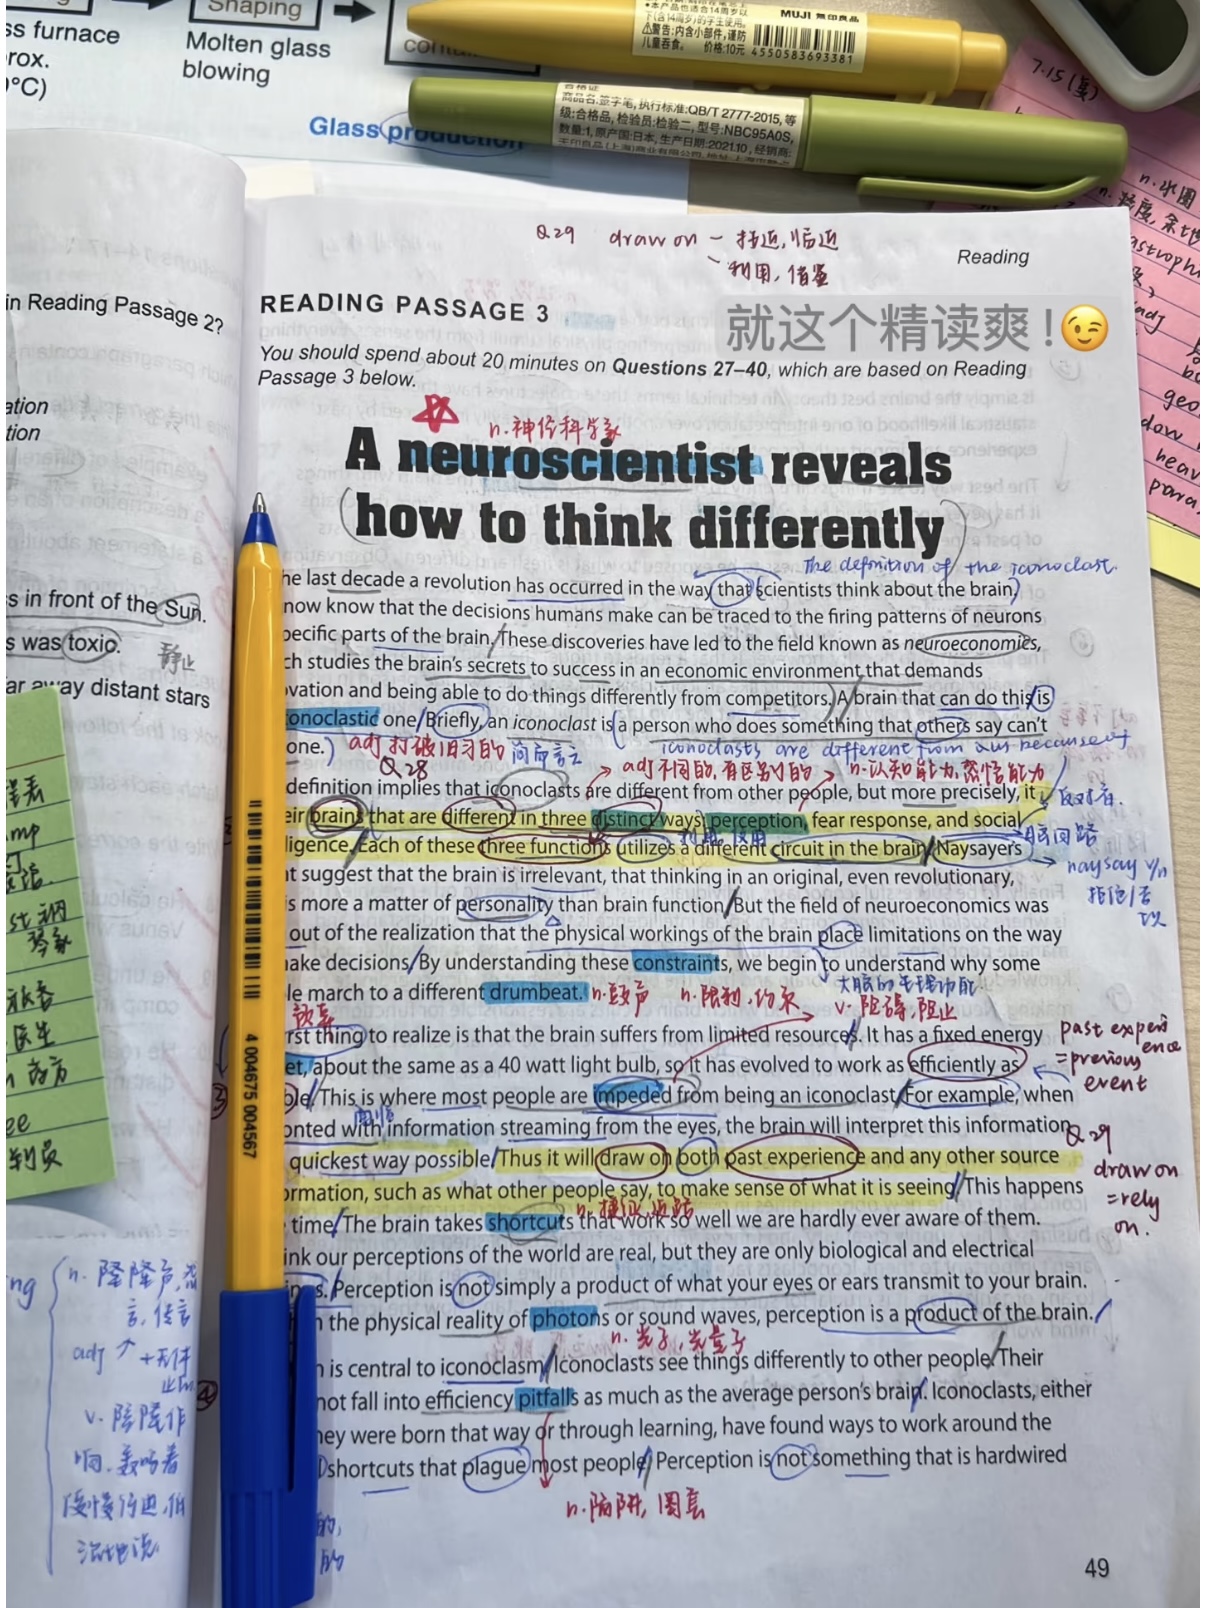 Shaping
ss furnace
rox.
°C)
Molten glass
blowing
Glass production
•本产品也适合14周岁以
下(含14周岁)的学生使用。
警告:内含小部件,谨防
儿童吞食。 价格:10元
MUJI 無印良品
4550583693381
商品名:签字笔,执行标准:QB/T 2777-2015,等
级:合格品,检验员:检验二,型号:NBC95A0S,
数量:1,原产国:日本,生产日期:2021.10,经销商:
7.15(复)
Q29 draw on - 接近,临近
- 利用,借鉴
Reading
in Reading Passage 2?
READING PASSAGE 3
就这个精读爽!😉
You should spend about 20 minutes on Questions 27–40, which are based on Reading
Passage 3 below.
ation
tion
n.神经科学家
A neuroscientist reveals
how to think differently
The definition of the iconoclast.
he last decade a revolution has occurred in the way that scientists think about the brain.
now know that the decisions humans make can be traced to the firing patterns of neurons
pecific parts of the brain. These discoveries have led to the field known as neuroeconomies,
ch studies the brain's secrets to success in an economic environment that demands
ovation and being able to do things differently from competitors. A brain that can do this is
onoclastic one. Briefly, an iconoclast is a person who does something that others say can't
one.)
adj 打破旧习的 简而言之
iconoclasts are different from our because of
s in front of the Sun.
s was toxic.
静止
ar away distant stars
Q28
adj 不同的,有区别的
n.认知能力,感悟能力
definition implies that iconoclasts are different from other people, but more precisely, it
反对者.
eir brains that are different in three distinct ways: perception, fear response, and social
利用,使用
ligence. Each of these three functions utilizes a different circuit in the brain. Naysayers
naysay v/n
t suggest that the brain is irrelevant, that thinking in an original, even revolutionary,
s more a matter of personality than brain function. But the field of neuroeconomics was
out of the realization that the physical workings of the brain place limitations on the way
ake decisions. By understanding these constraints, we begin to understand why some
le march to a different drumbeat.
n.鼓声
n.限制,约束
大脑的生理功能
v.阻碍,阻止
rst thing to realize is that the brain suffers from limited resources. It has a fixed energy
et, about the same as a 40 watt light bulb, so it has evolved to work as efficiently as
past experience
=previous
event
ble. This is where most people are impeded from being an iconoclast. For example, when
onted with information streaming from the eyes, the brain will interpret this information
quickest way possible. Thus it will draw on both past experience and any other source
ormation, such as what other people say, to make sense of what it is seeing. This happens
Q29
draw on
=rely
on.
n.捷径,近路
time. The brain takes shortcuts that work so well we are hardly ever aware of them.
ink our perceptions of the world are real, but they are only biological and electrical
ings. Perception is not simply a product of what your eyes or ears transmit to your brain.
n the physical reality of photons or sound waves, perception is a product of the brain.
n.光子,光量子
n is central to iconoclasm. Iconoclasts see things differently to other people. Their
not fall into efficiency pitfalls as much as the average person's brain. Iconoclasts, either
hey were born that way or through learning, have found ways to work around the
shortcuts that plague most people. Perception is not something that is hardwired
n.陷阱,圈套
49
4 004675 004567